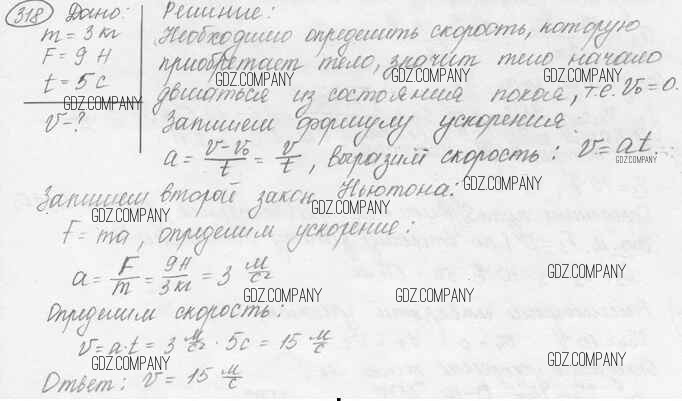 318 Дано:
m = 3 кг
F = 9 Н
t = 5 с
v - ?
Решение:
Необходимо определить скорость, которую
приобретает тело, значит тело начало
двигаться из состояния покоя, т.е. v₀ = 0.
Запишем формулу ускорения
a = (v - v₀)/t = v/t, выразим скорость: v = at.
Запишем второй закон Ньютона:
F = ma, определим ускорение:
a = F/m = 9Н/3кг = 3 м/с²
Определим скорость:
v = a·t = 3 м/с² · 5с = 15 м/с
Ответ: v = 15 м/с
GDZ.COMPANY
GDZ.COMPANY
GDZ.COMPANY
GDZ.COMPANY
GDZ.COMPANY
GDZ.COMPANY
GDZ.COMPANY
GDZ.COMPANY
GDZ.COMPANY
GDZ.COMPANY
GDZ.COMPANY
GDZ.COMPANY
GDZ.COMPANY
GDZ.COMPANY